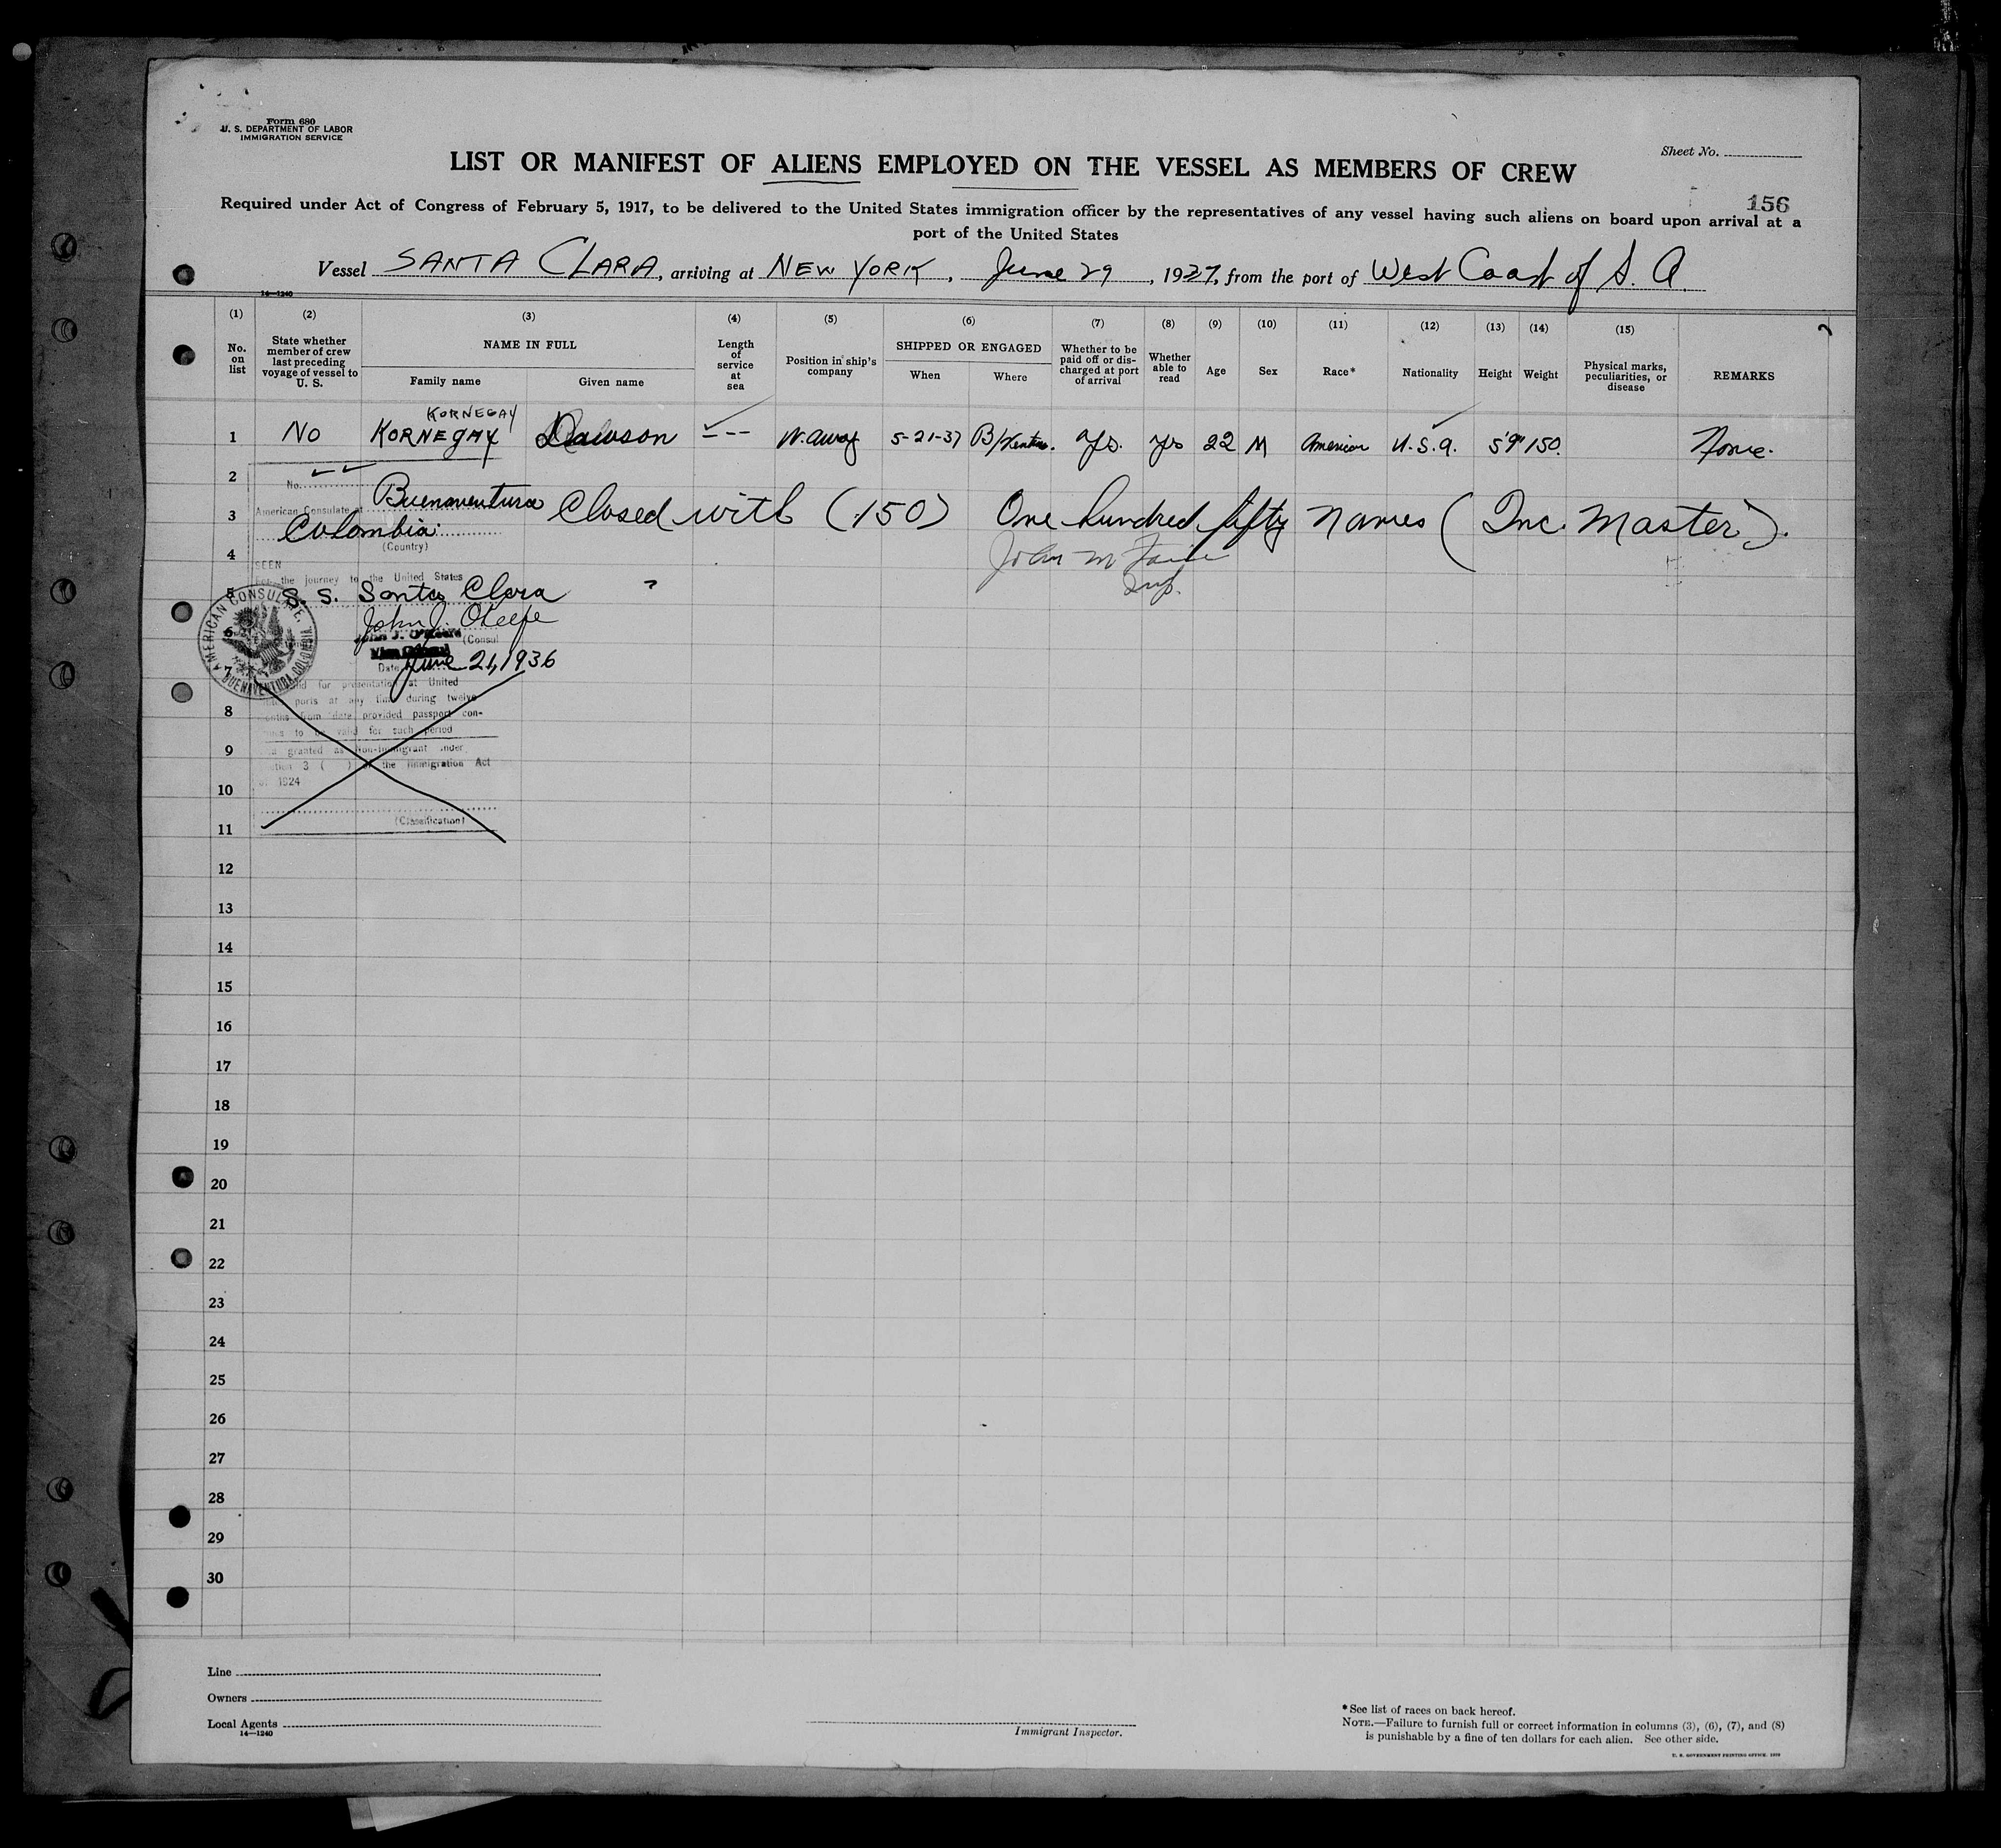 Form 680
U. S. DEPARTMENT OF LABOR
IMMIGRATION SERVICE
LIST OR MANIFEST OF ALIENS EMPLOYED ON THE VESSEL AS MEMBERS OF CREW
Sheet No.
156
Required under Act of Congress of February 5, 1917, to be delivered to the United States immigration officer by the representatives of any vessel having such aliens on board upon arrival at a
port of the United States
Vessel SANTA CLARA, arriving at NEW YORK, June 29, 1937, from the port of West Coast of S. A.
14—1240
(1) (2) (3) (4) (5) (6) (7) (8) (9) (10) (11) (12) (13) (14) (15)
No. on list
State whether member of crew last preceding voyage of vessel to U. S.
NAME IN FULL
Family name
Given name
Length of service at sea
Position in ship's company
SHIPPED OR ENGAGED
When
Where
Whether to be paid off or discharged at port of arrival
Whether able to read
Age
Sex
Race*
Nationality
Height
Weight
Physical marks, peculiarities, or disease
REMARKS
KORNEGAY
1 No KORNEGAY Dawson --- W.away 5-21-37 yes. yes 22 M American U.S.A. 5'9" 150. None.
2
No.
American Consulate at Buenaventura
3 Colombia Closed with (150) One hundred fifty names (Inc. Master).
(Country)
4
John M
Insp.
SEEN
For the journey to the United States
5 S. S. Santa Clara
John J. O'Keefe
6 John J. O'Keefe (Consul
AMERICAN CONSULATE, BUENAVENTURA, COLOMBIA
7 Date June 21, 1936
Valid for presentation at United
States ports at any time during twelve
8 months from date provided passport con-
tinues to be valid for such period
9 granted as Non-immigrant under
Section 3 ( ) of the Immigration Act
of 1924
10
(Classification)
11
12
13
14
15
16
17
18
19
20
21
22
23
24
25
26
27
28
29
30
Line
Owners
Local Agents
14—1240
Immigrant Inspector.
*See list of races on back hereof.
NOTE.—Failure to furnish full or correct information in columns (3), (6), (7), and (8)
is punishable by a fine of ten dollars for each alien. See other side.
U. S. GOVERNMENT PRINTING OFFICE